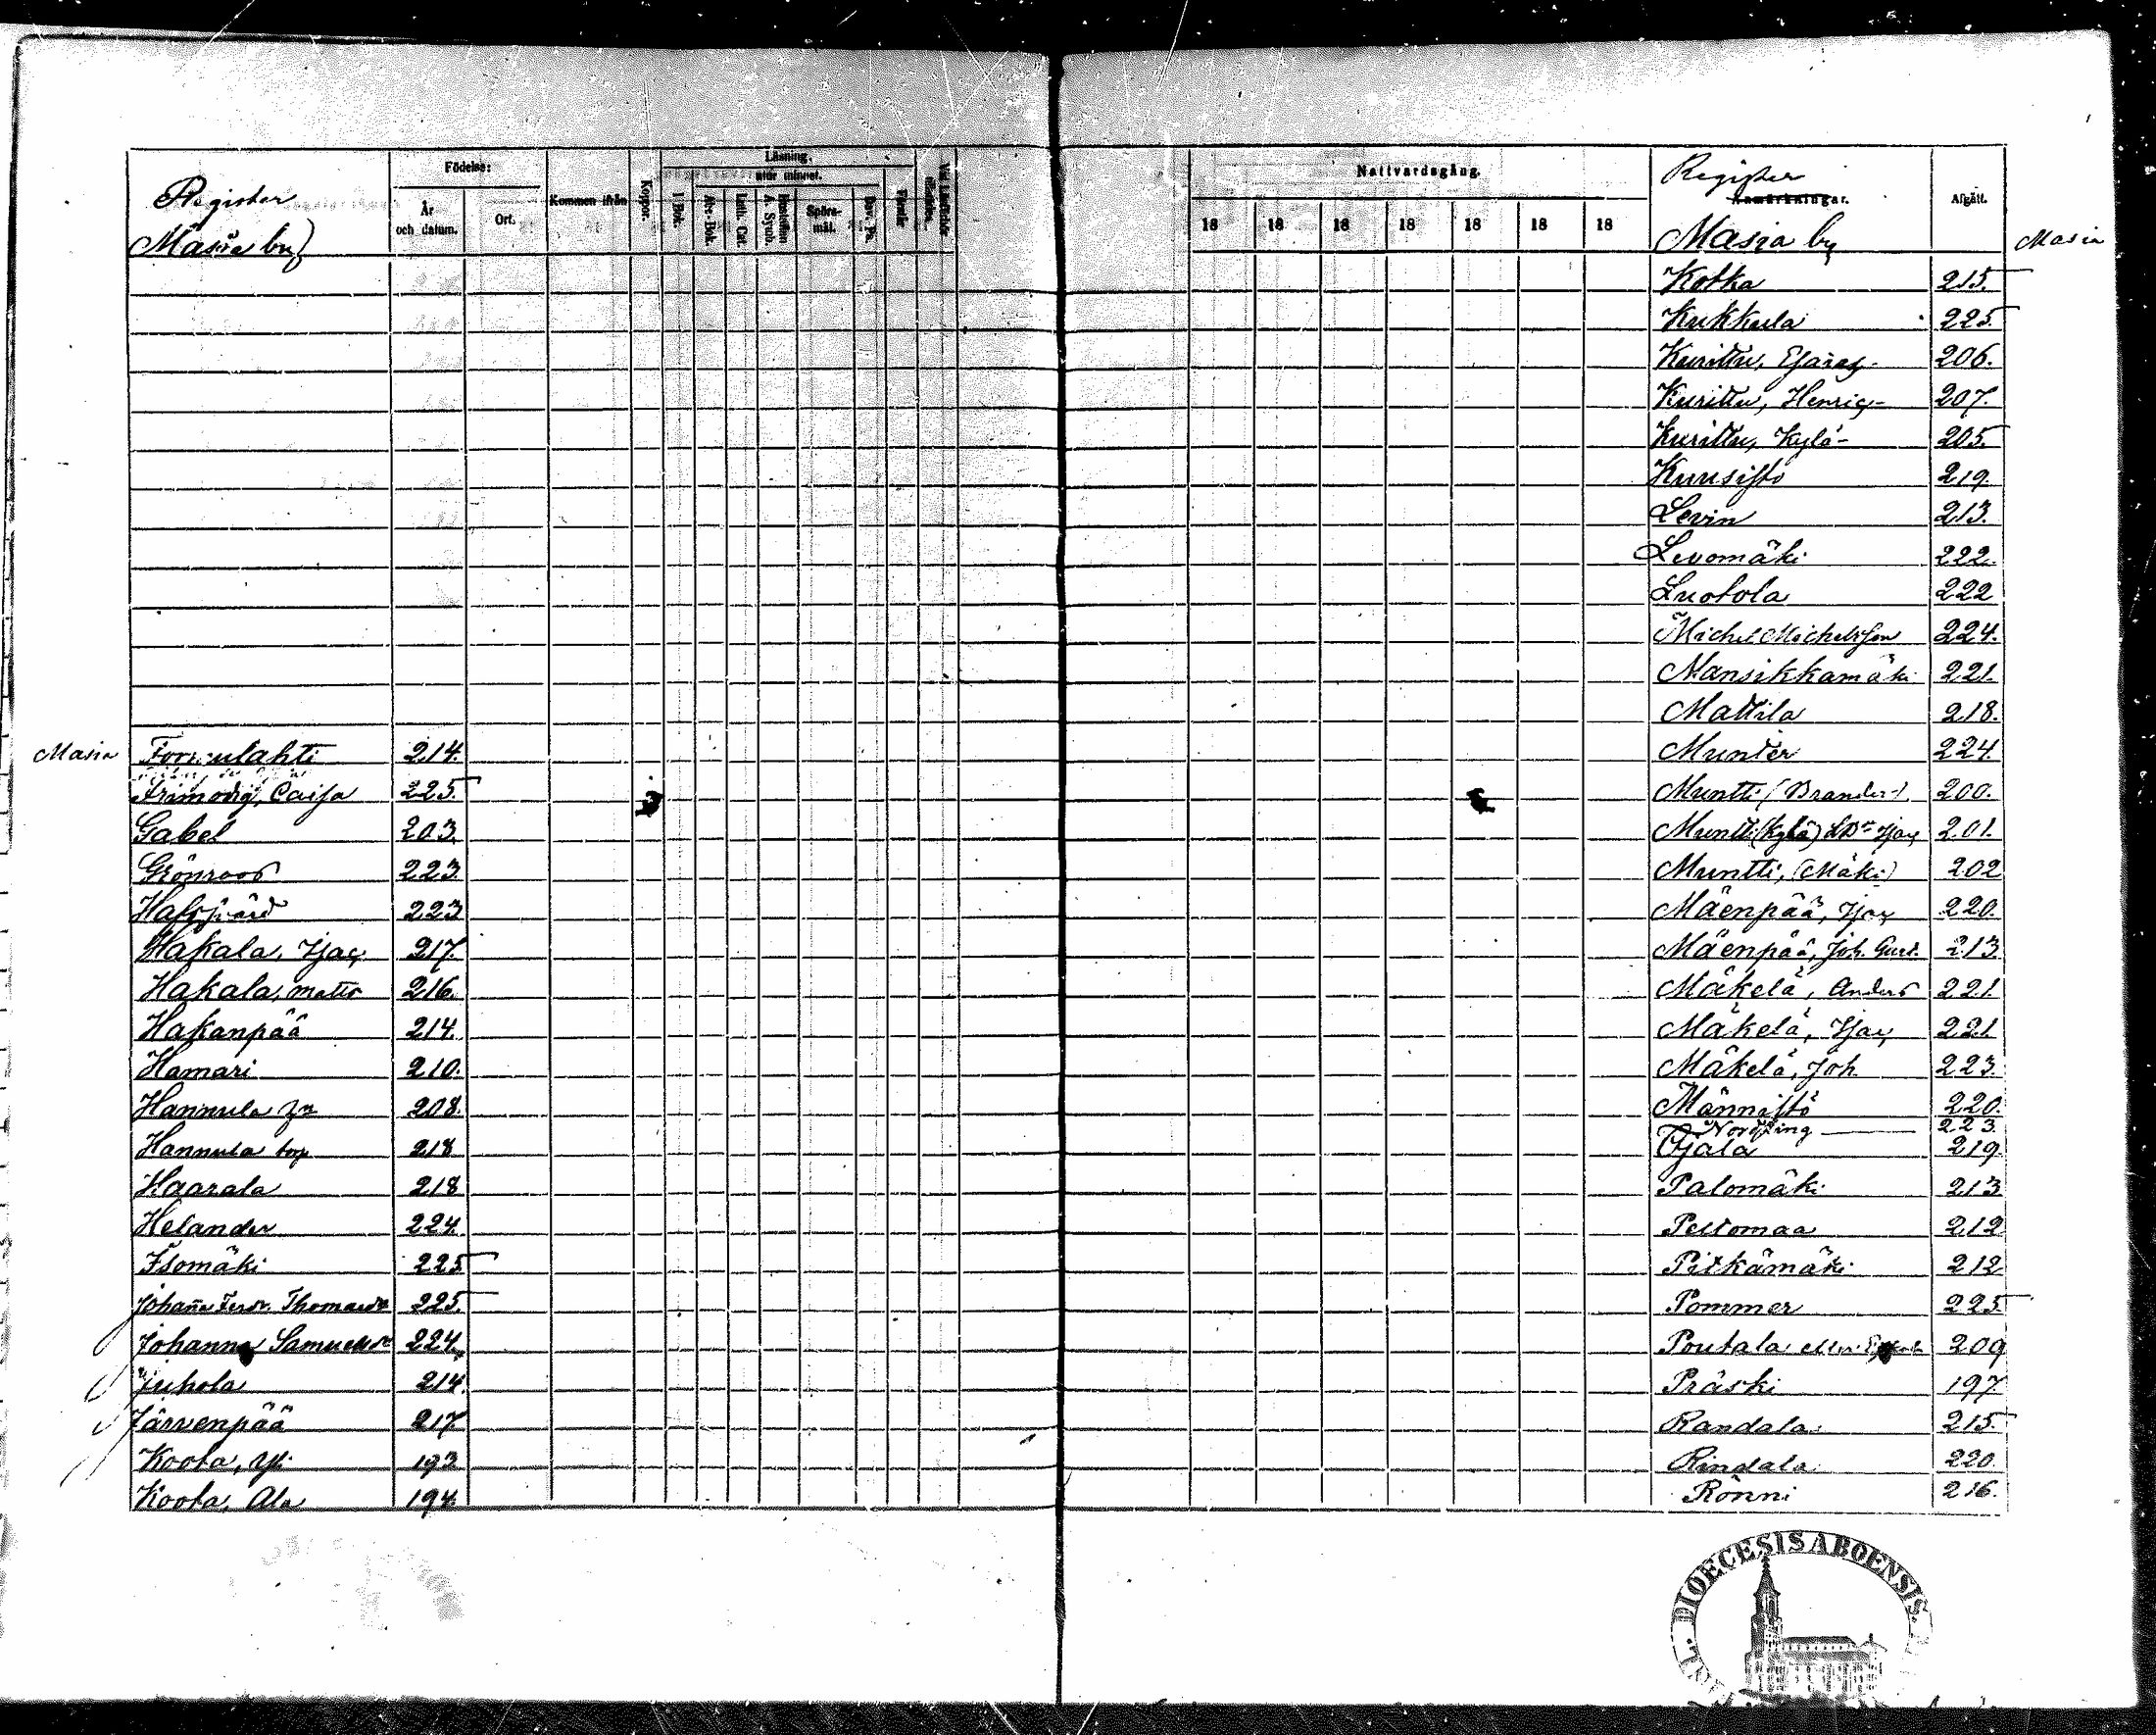 Register
Masia by
Födelse:
År och datum.
Ort.
Kommen ifrån
Koppor.
Läsning.
utur minnet.
I Bok.
Abc-Bok.
Luth. Cat.
A. Symb.
Spörsmål.
Dav. Ps.
Masia
214.
Frimodig, Caisa 225.
Gabel 203.
Grönroos 223
223
Hakala, Isac 217.
Hakala, Matts 216.
Hakanpää 214.
Hamari 210.
Hannula 208.
Hannula torp 218
Haarala 218
Helander 224.
Isomäki 225
Johanna Fredr. Thomasdr 225.
Johanna Samuelsdr 224.
Juhola 214.
Järvenpää 217.
Koota, Yli 193
Koota, Ala 194.
Nattvardsgång.
18 18 18 18 18 18 18
Register
Anmärkningar.
Masia by
Afgått.
Masia
Kotka 215.
Kukkula 225.
Kurittu, Esaias- 206.
Kurittu, Henric- 207.
Kurittu, Kylä- 205.
Kuusisto 219.
Levin 213.
Levomäki 222.
Luotola 222
Michel Michelsson 224.
Mansikkamäki 221.
Mattila 218.
Munter 224.
Muntti (Brander) 200.
Muntti (Kylä) Isac 201.
Muntti, (Mäki) 202
Mäenpää, Isac 220.
Mäenpää, Joh. Gust. 213
Mäkelä, Anders 221.
Mäkelä, Isac 221.
Mäkelä, Joh. 223.
Männistö 220.
Nordling 223
Ojala 219.
Palomäki 213
Peltomaa 212
Pitkämäki 212
Pommer 225.
Poutala eller 209
Präski 197
Randala 215.
Rindala 220.
Rönni 216.
DIOECESIS ABOENSIS.